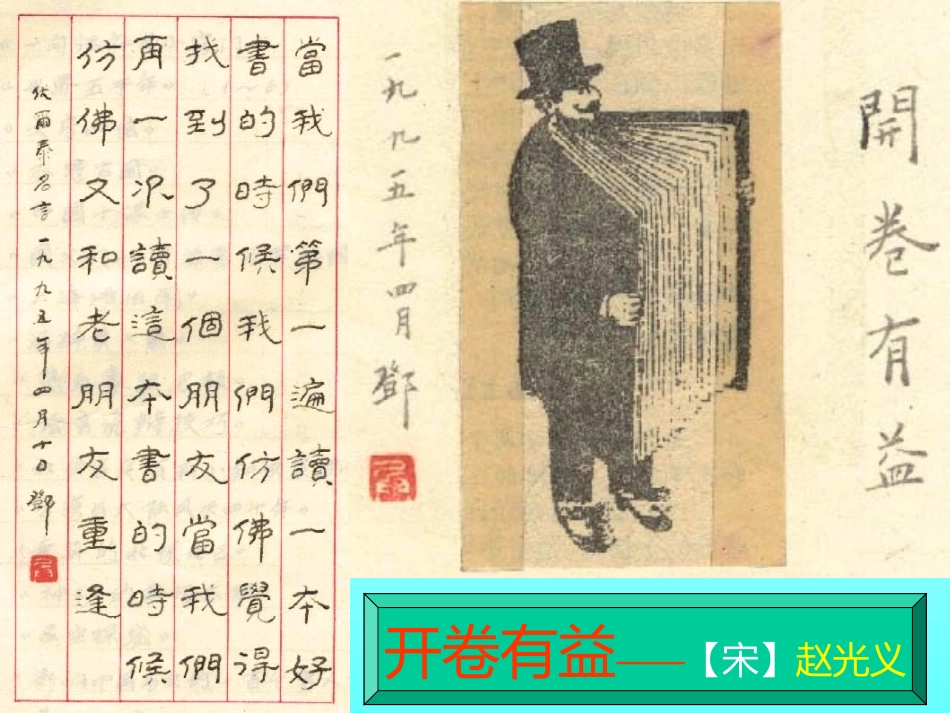 開卷有益
一九九五年四月 鄧
當我們第一遍讀一本好
書的時候我們仿佛覺得
找到了一個朋友當我們
再一次讀這本書的時候
仿佛又和老朋友重逢
伏爾泰名言一九九五年四月十日鄧
开卷有益——【宋】赵光义